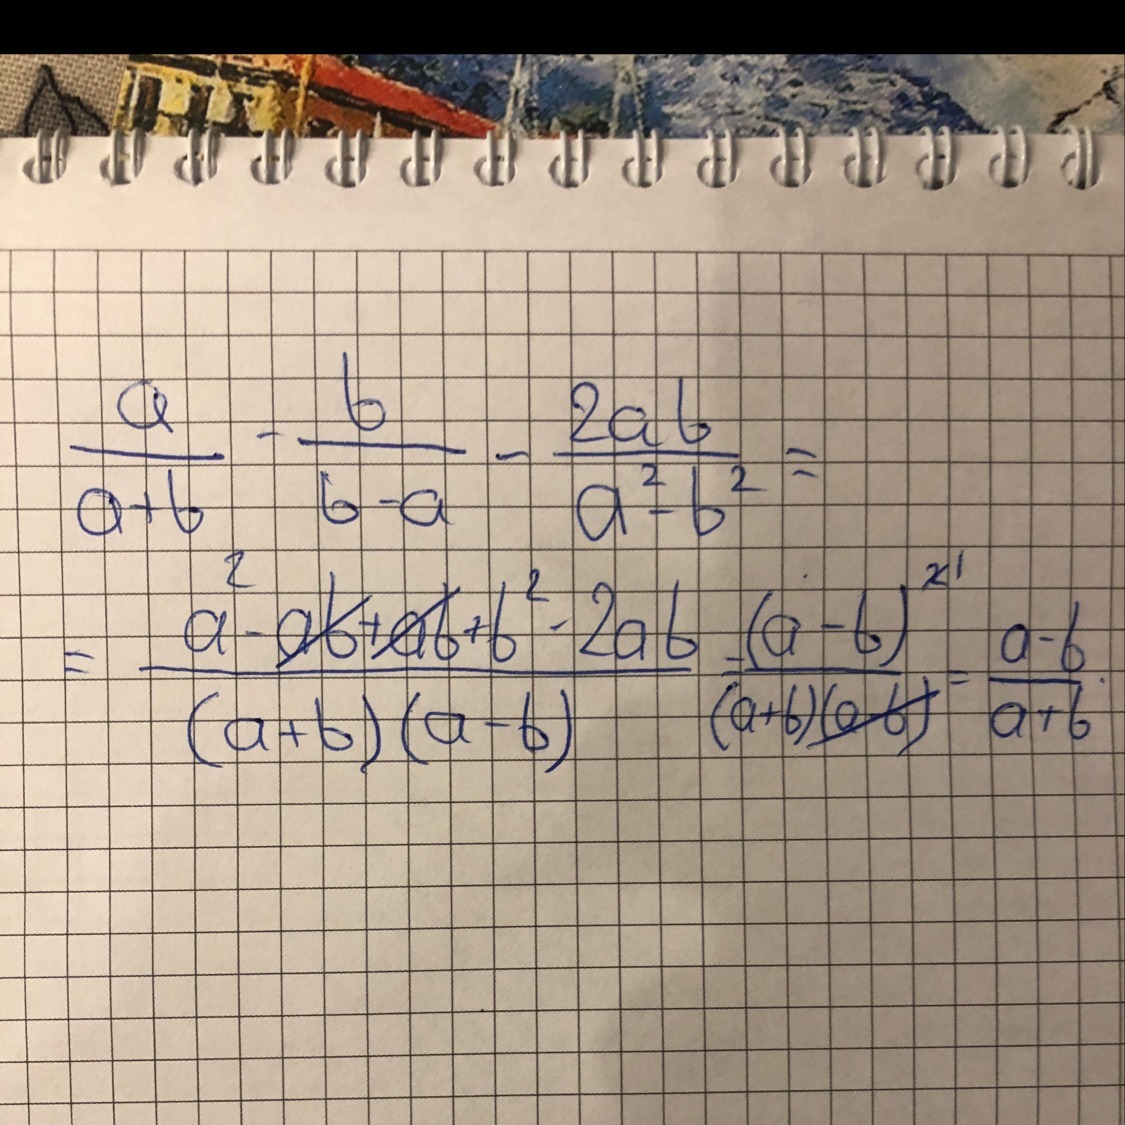 a/(a+b) - b/(b-a) - 2ab/(a²-b²) =
= (a²-ab+ab+b²-2ab)/((a+b)(a-b)) = (a-b)²¹/((a+b)(a-b)) = (a-b)/(a+b).